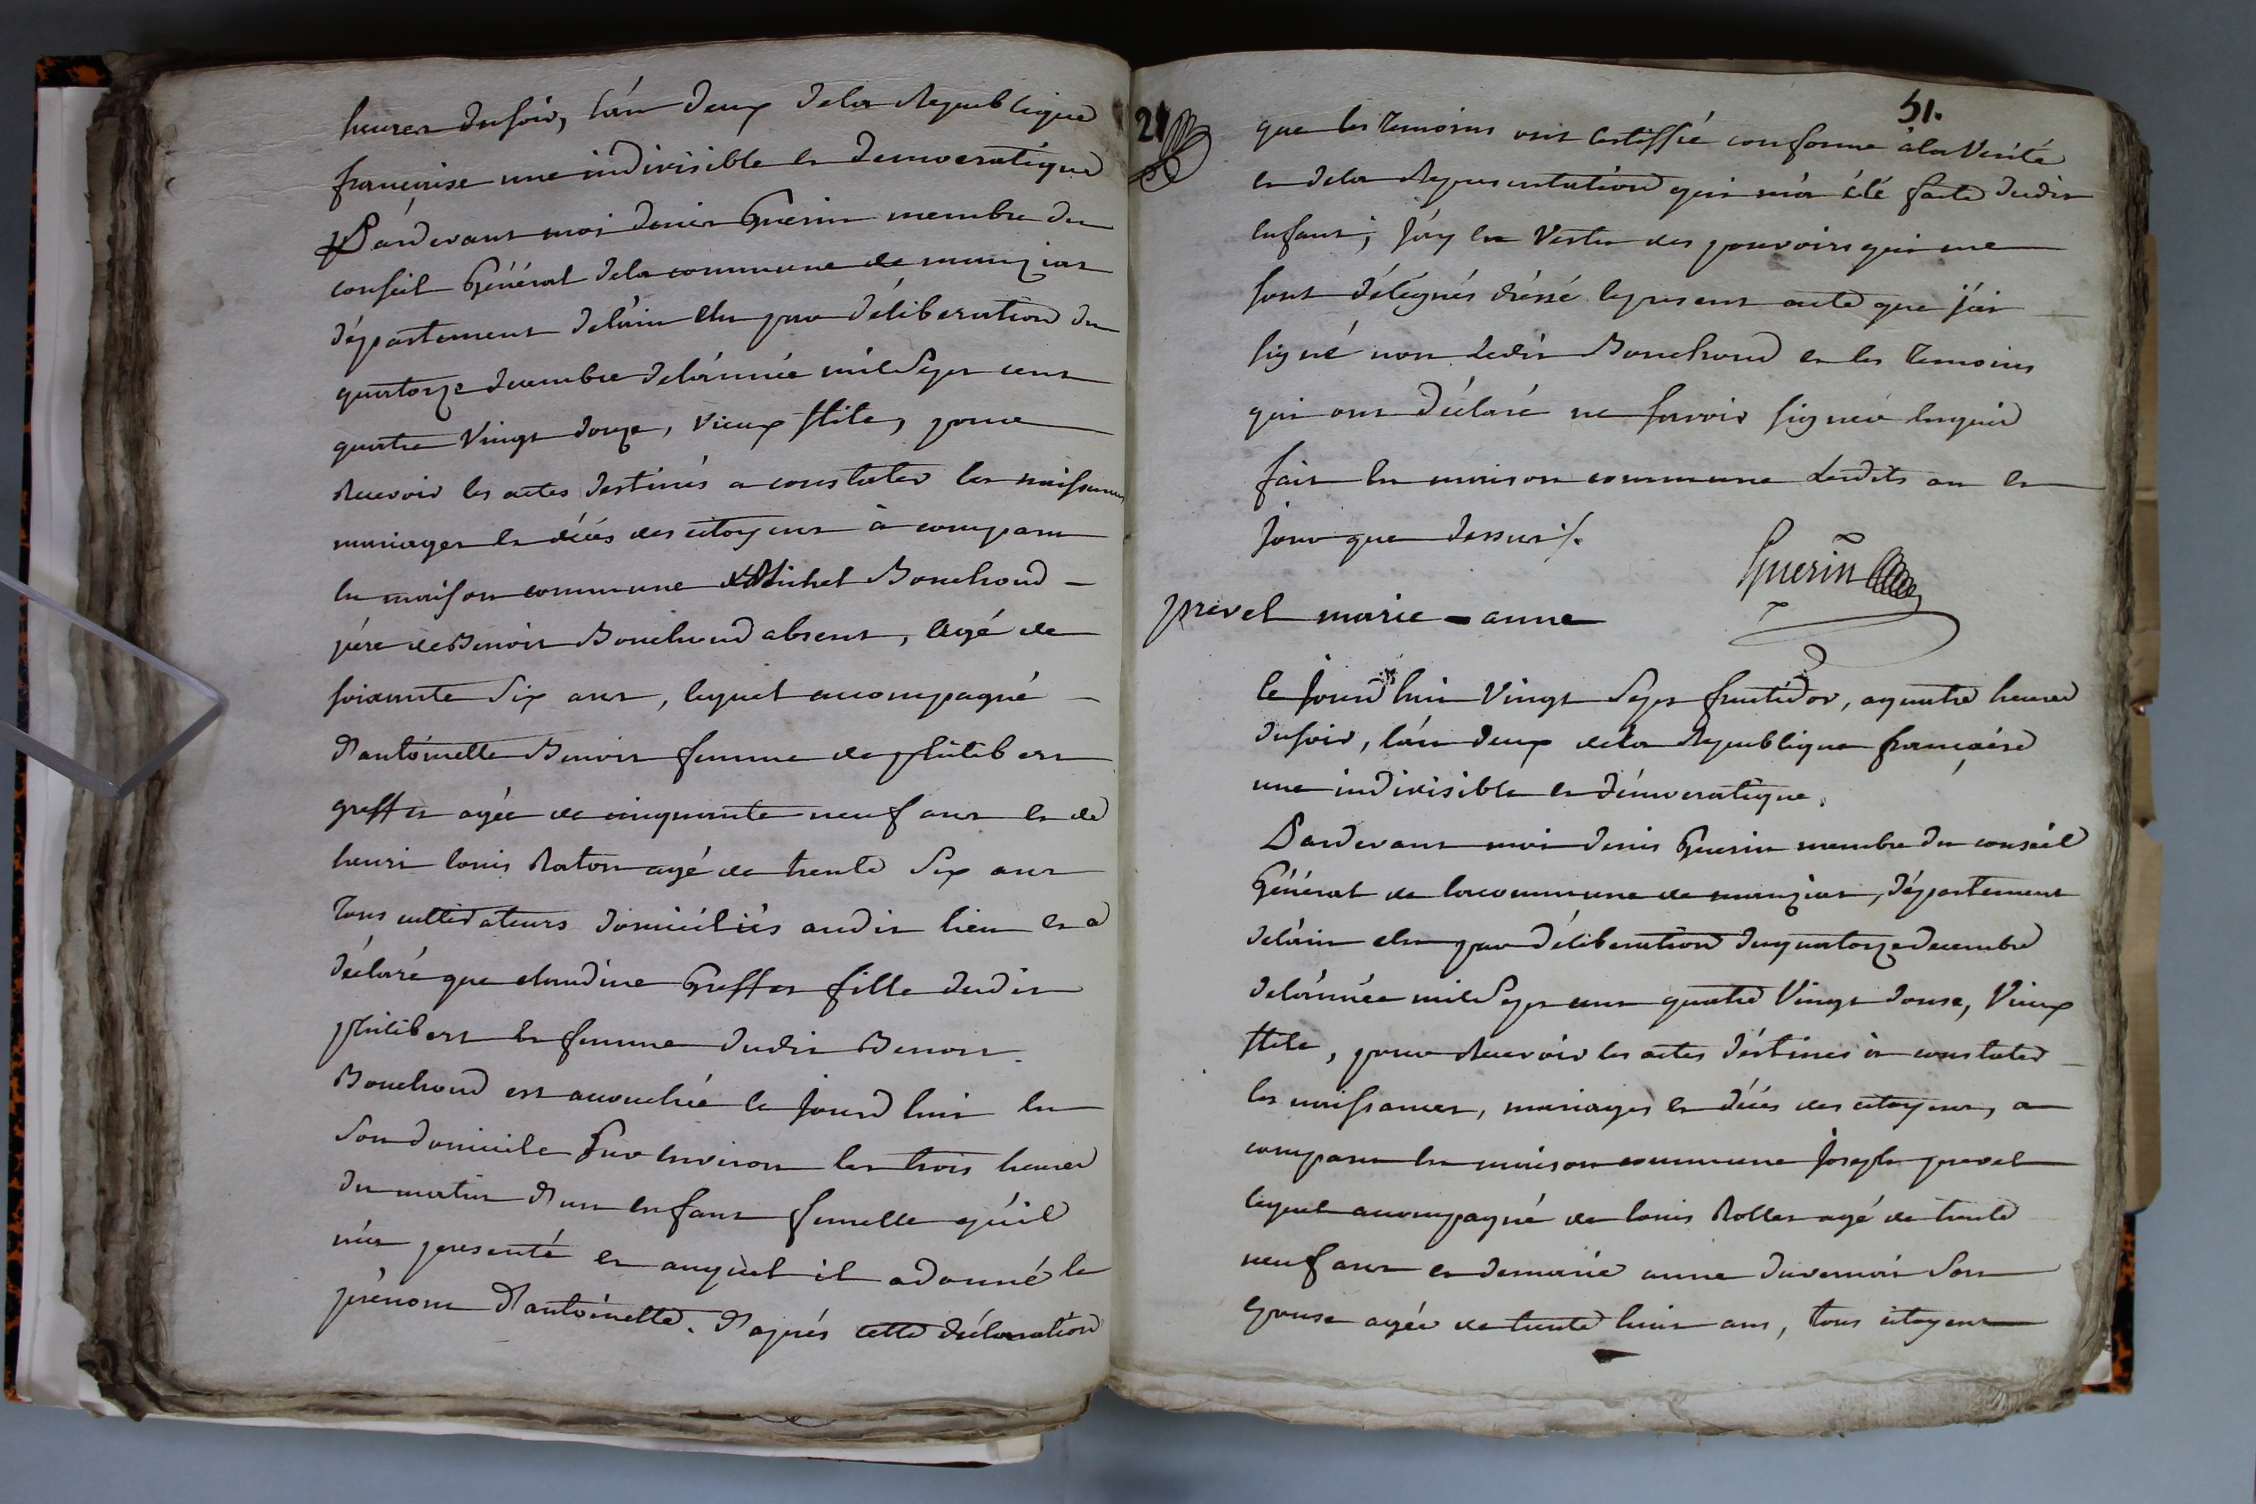 heures du soir, l'án deux dela Republique
française une indivisible et democratique
Pardevant moi denis Guerin membre du
conseil Général dela commune de manziat
département delàin élu par déliberation du
quatorze decembre delánnée mil Sept cent
quatre Vingt douze, Vieux stile, pour
Recevoir les actes destinés a constater les naissances
mariages et décés des citoyens à comparu
en maison commune Michel Bouchoud
pére de Benoit Bouchoud absent, agé de
soixante Six ans, lequel accompagné
D'antoinette Benoit femme de philibert
greffet agée de cinquante neuf ans et de
henri louis Raton agé de trente Six ans
Tous cultivateurs domiciliés audit lieu et a
déclaré que claudine Greffet fille dudit
philibert et femme dudit Benoit
Bouchoud est accouchée ce jourd'hui en
Son domicile Sur environ les trois heures
du matin D'un enfant femelle qu'il
m'a presenté et auquel il adonné le
prénom D'antoinette. D'aprés cette déclaration
21
51.
que les Temoins ont certiffié conforme àla Verité
et dela Representation qui m'a été faite dudit
enfant, j'ay en Vertu des pouvoirs qui me
sont délégués dréssé le present acte que j'ai
signé non Ledit Bouchoud et les Temoins
qui ont déclaré ne savoir signer enquis
fait en maison commune Lesdits an et
jour que dessus /.
Guerin
prevel marie - anne
Ce jourd'hui Vingt Sept fructidor, a quatre heures
du soir, l'án deux dela Republique française
une indivisible et démocratique.
Pardevant moi denis Guerin membre du conseil
Général de la commune de manziat, département
delàin élu par déliberation du quatorze decembre
delánnée mil Sept cent quatre Vingt douse, Vieux
stile, pour Recevoir les actes déstinés à constater
les naissances, mariages et décés des citoyens, a
comparu en maison commune Joseph prevel
lequel accompagné de louis Rollet agé de trente
neuf ans et de marie anne duvernoir Son
epouse agée de trente huit ans, tous citoyens